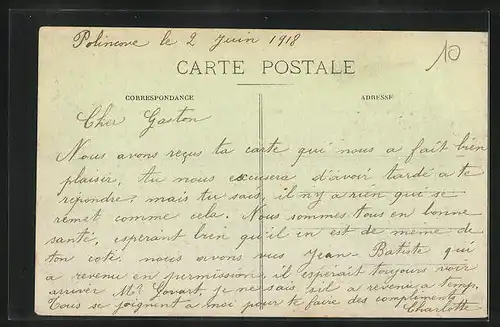 Polincove le 2 Juin 1918
10
CARTE POSTALE
CORRESPONDANCE
ADRESSE
Cher Gaston
Nous avons reçus ta carte qui nous a fait bien
plaisir, tu nous excusera d'avoir tardé a te
repondre, mais tu sais, il n'y a rien qui se
remet comme cela. Nous sommes tous en bonne
santé, esperant bien qu'il en est de meme de
ton coté. nous avons vus Jean-Batiste qui
a revenu en permission, il esperait toujours voir
arriver Mr Govart, je ne sais s'il a revenu a temp.
Tous se joignent a moi pour te faire des compliments
Charlotte